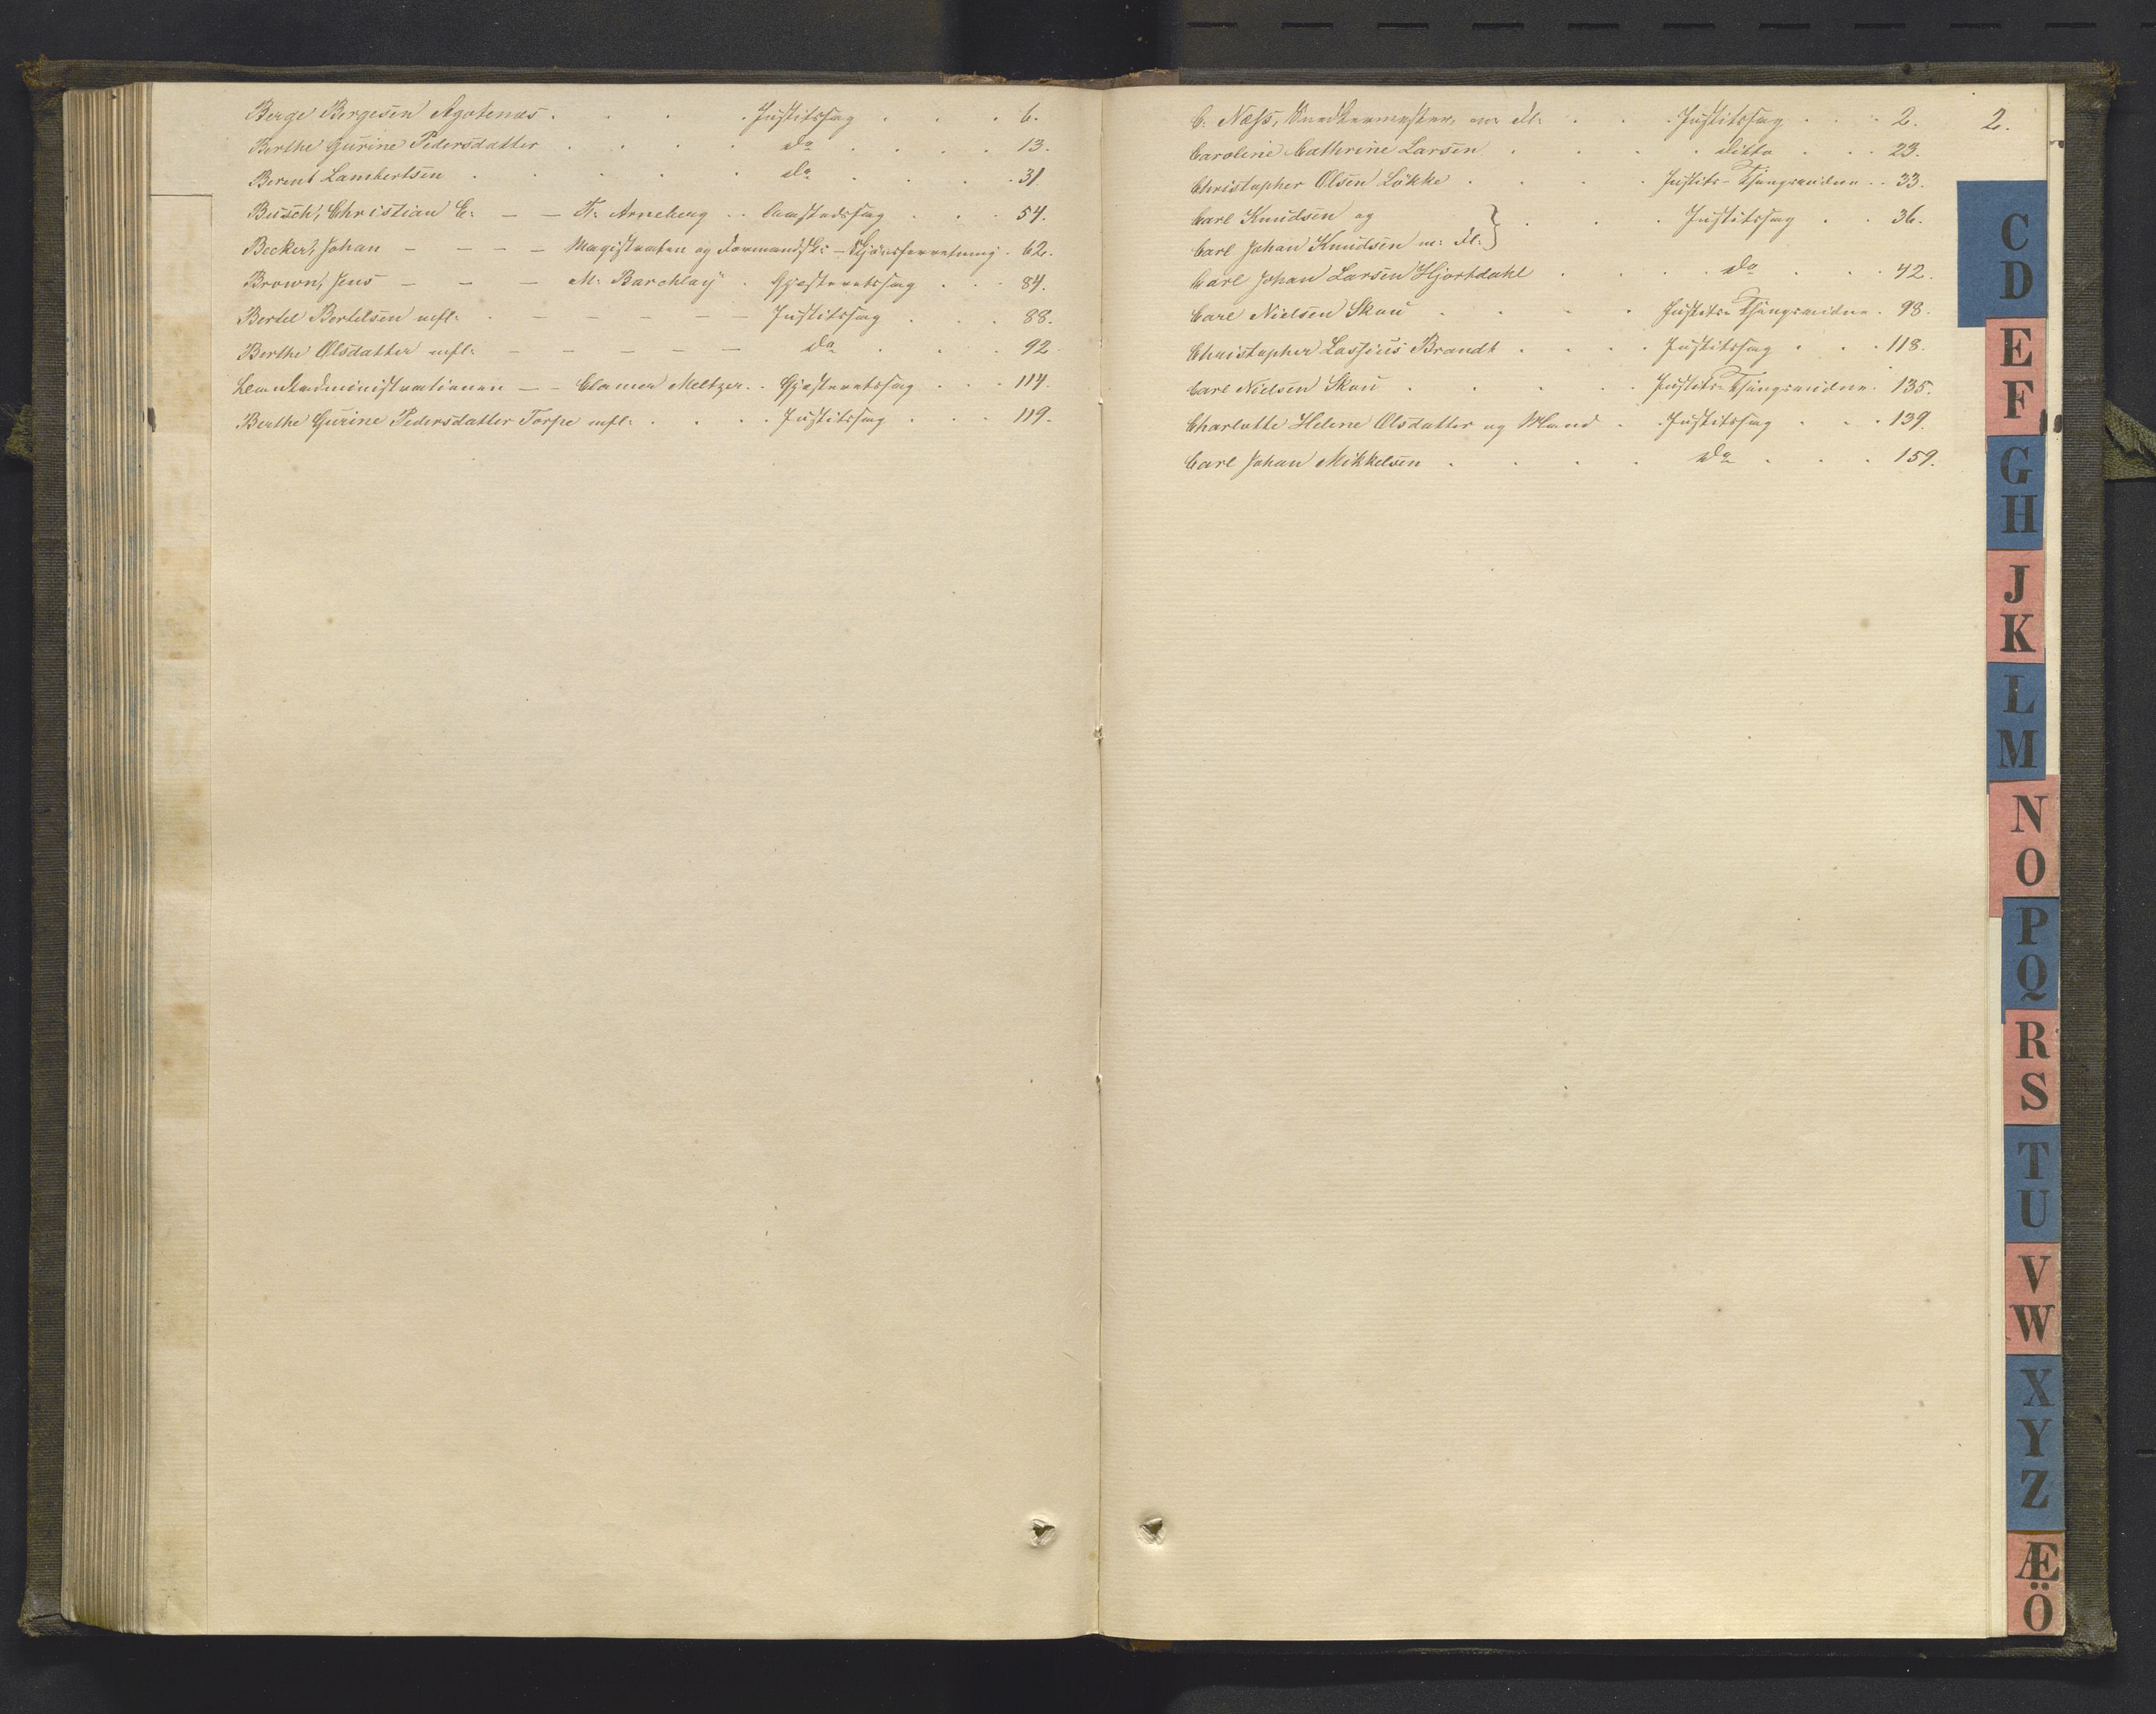 Berge Bergesen Agotenæs . . . . Justitssag . . . 6.
Berthe Gurine Pedersdatter . . . . do . . . . 13.
Berent Lambertsen . . . . . do . . . . 31
Busch, Christian E: — — Fr: Arneberg . . Contrastag . . . 54.
Becker, Johan — — — — Magistraten og Formandsk: — Skjönsforretning . 62.
Brown, Jens — — — M. Barchlay . Gjesteretssag . . . 84.
Bertel Bertelsen mfl: . — — — — — Justitssag . . . 88.
Berthe Olsdatter mfl: — — — — — do . . . 92.
Bankadministrationen — — Clamer Meltzer . . Gjesteretssag . . . 114.
Berthe Gurine Pedersdatter Torpe mfl: . . . . Justitssag . . . 119.
C. Næss, m: Fl: . . . Justitssag . . . 2.
2.
Caroline Cathrine Larsen . . . . ditto . . . 23.
Christopher Olsen Lökke . . . . Justits-Thingsvidne . . 33.
Carl Knudsen og
Carl Johan Knudsen m: Fl: } . . . Justitssag . . 36.
Carl Johan Larsen Hjortdahl . . . . do . . . 42.
Carl Nielsen Skau . . . . Justits-Thingsvidne . 98.
Christopher Lassius Brandt . . . . Justitssag . . . 118.
Carl Nielsen Skau . . . . . Justits-Thingsvidne . 135.
Charlotte Helene Olsdatter og Mand . . Justitssag . . . 139.
Carl Johan Mikkelsen . . . . do . . . 159.
C
D
E
F
G
H
J
K
L
M
N
O
P
Q
R
S
T
U
V
W
X
Y
Z
Æ
Ö